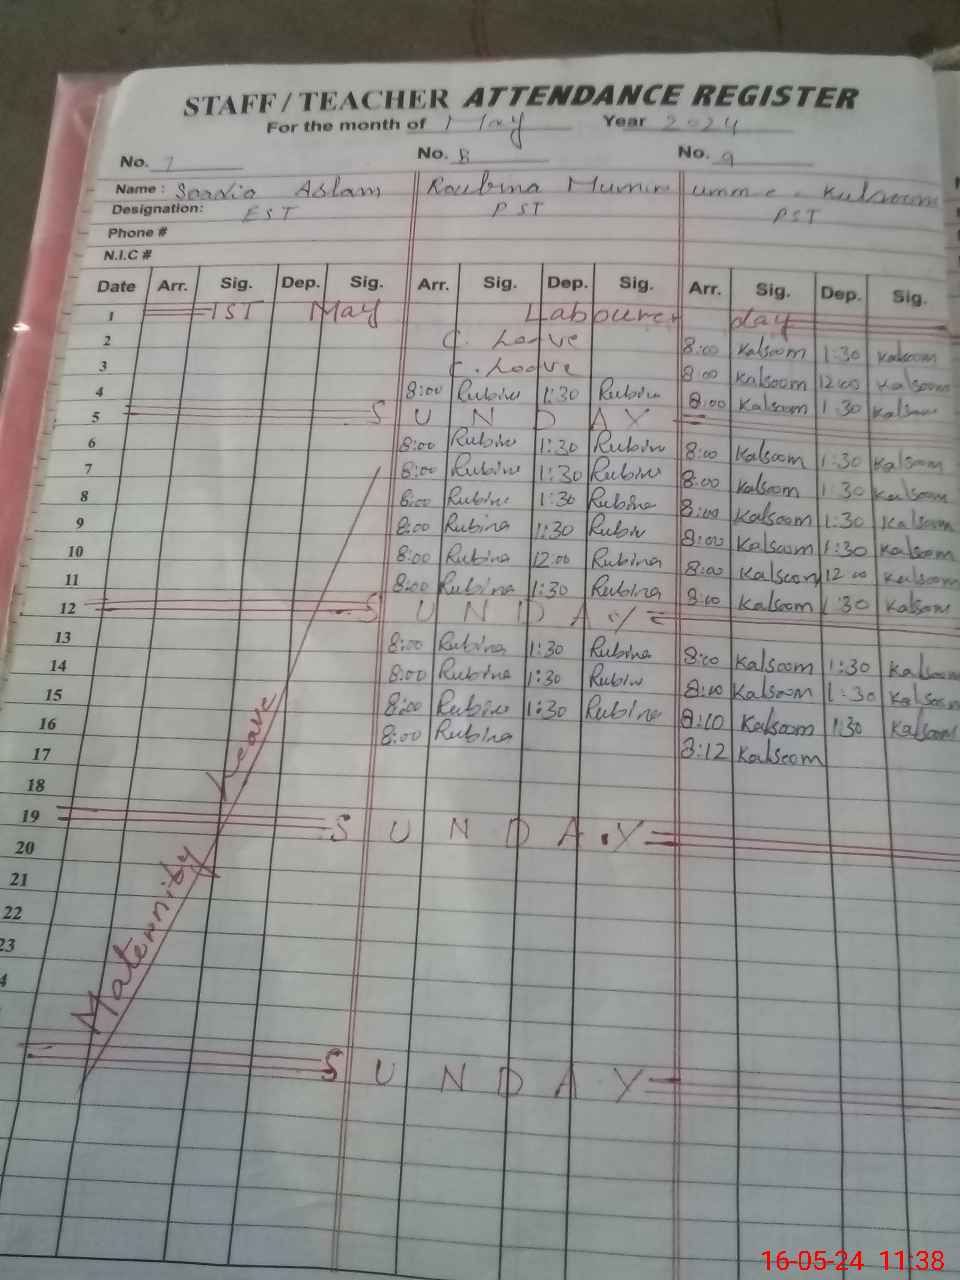 STAFF / TEACHER ATTENDANCE REGISTER
For the month of May Year 2024
No. 7 No. 8 No. 9
Name : Saadia Aslam Roubina Munir umm e Kulsoom
Designation: EST PST PST
Phone #
N.I.C #
Date Arr. Sig. Dep. Sig. Arr. Sig. Dep. Sig. Arr. Sig. Dep. Sig.
1 1ST May Labourer day
2 C. Leave 8:00 Kalsoom 1:30 Kalsoom
3 C. Leave 8:00 Kalsoom 12:00 Kalsoom
4 8:00 Rubina 1:30 Rubina 8:00 Kalsoom 1:30 Kalsoom
5 S U N D A Y
6 8:00 Rubina 1:30 Rubina 8:00 Kalsoom 1:30 Kalsoom
7 8:00 Rubina 1:30 Rubina 8:00 Kalsoom 1:30 Kalsoom
8 8:00 Rubina 1:30 Rubina 8:00 Kalsoom 1:30 Kalsoom
9 8:00 Rubina 1:30 Rubina 8:00 Kalsoom 1:30 Kalsoom
10 8:00 Rubina 12:00 Rubina 8:00 Kalsoom 12:00 Kalsoom
11 8:00 Rubina 1:30 Rubina 8:00 Kalsoom 1:30 Kalsoom
12 S U N D A Y
13 8:00 Rubina 1:30 Rubina 8:00 Kalsoom 1:30 Kalsoom
14 8:00 Rubina 1:30 Rubina 8:10 Kalsoom 1:30 Kalsoom
15 8:00 Rubina 1:30 Rubina 8:10 Kalsoom 1:30 Kalsoom
16 8:00 Rubina 8:12 Kalsoom
17
18
19 S U N D A Y
20
21
22
23
4
S U N D A Y
Maternity Leave
16-05-24 11:38